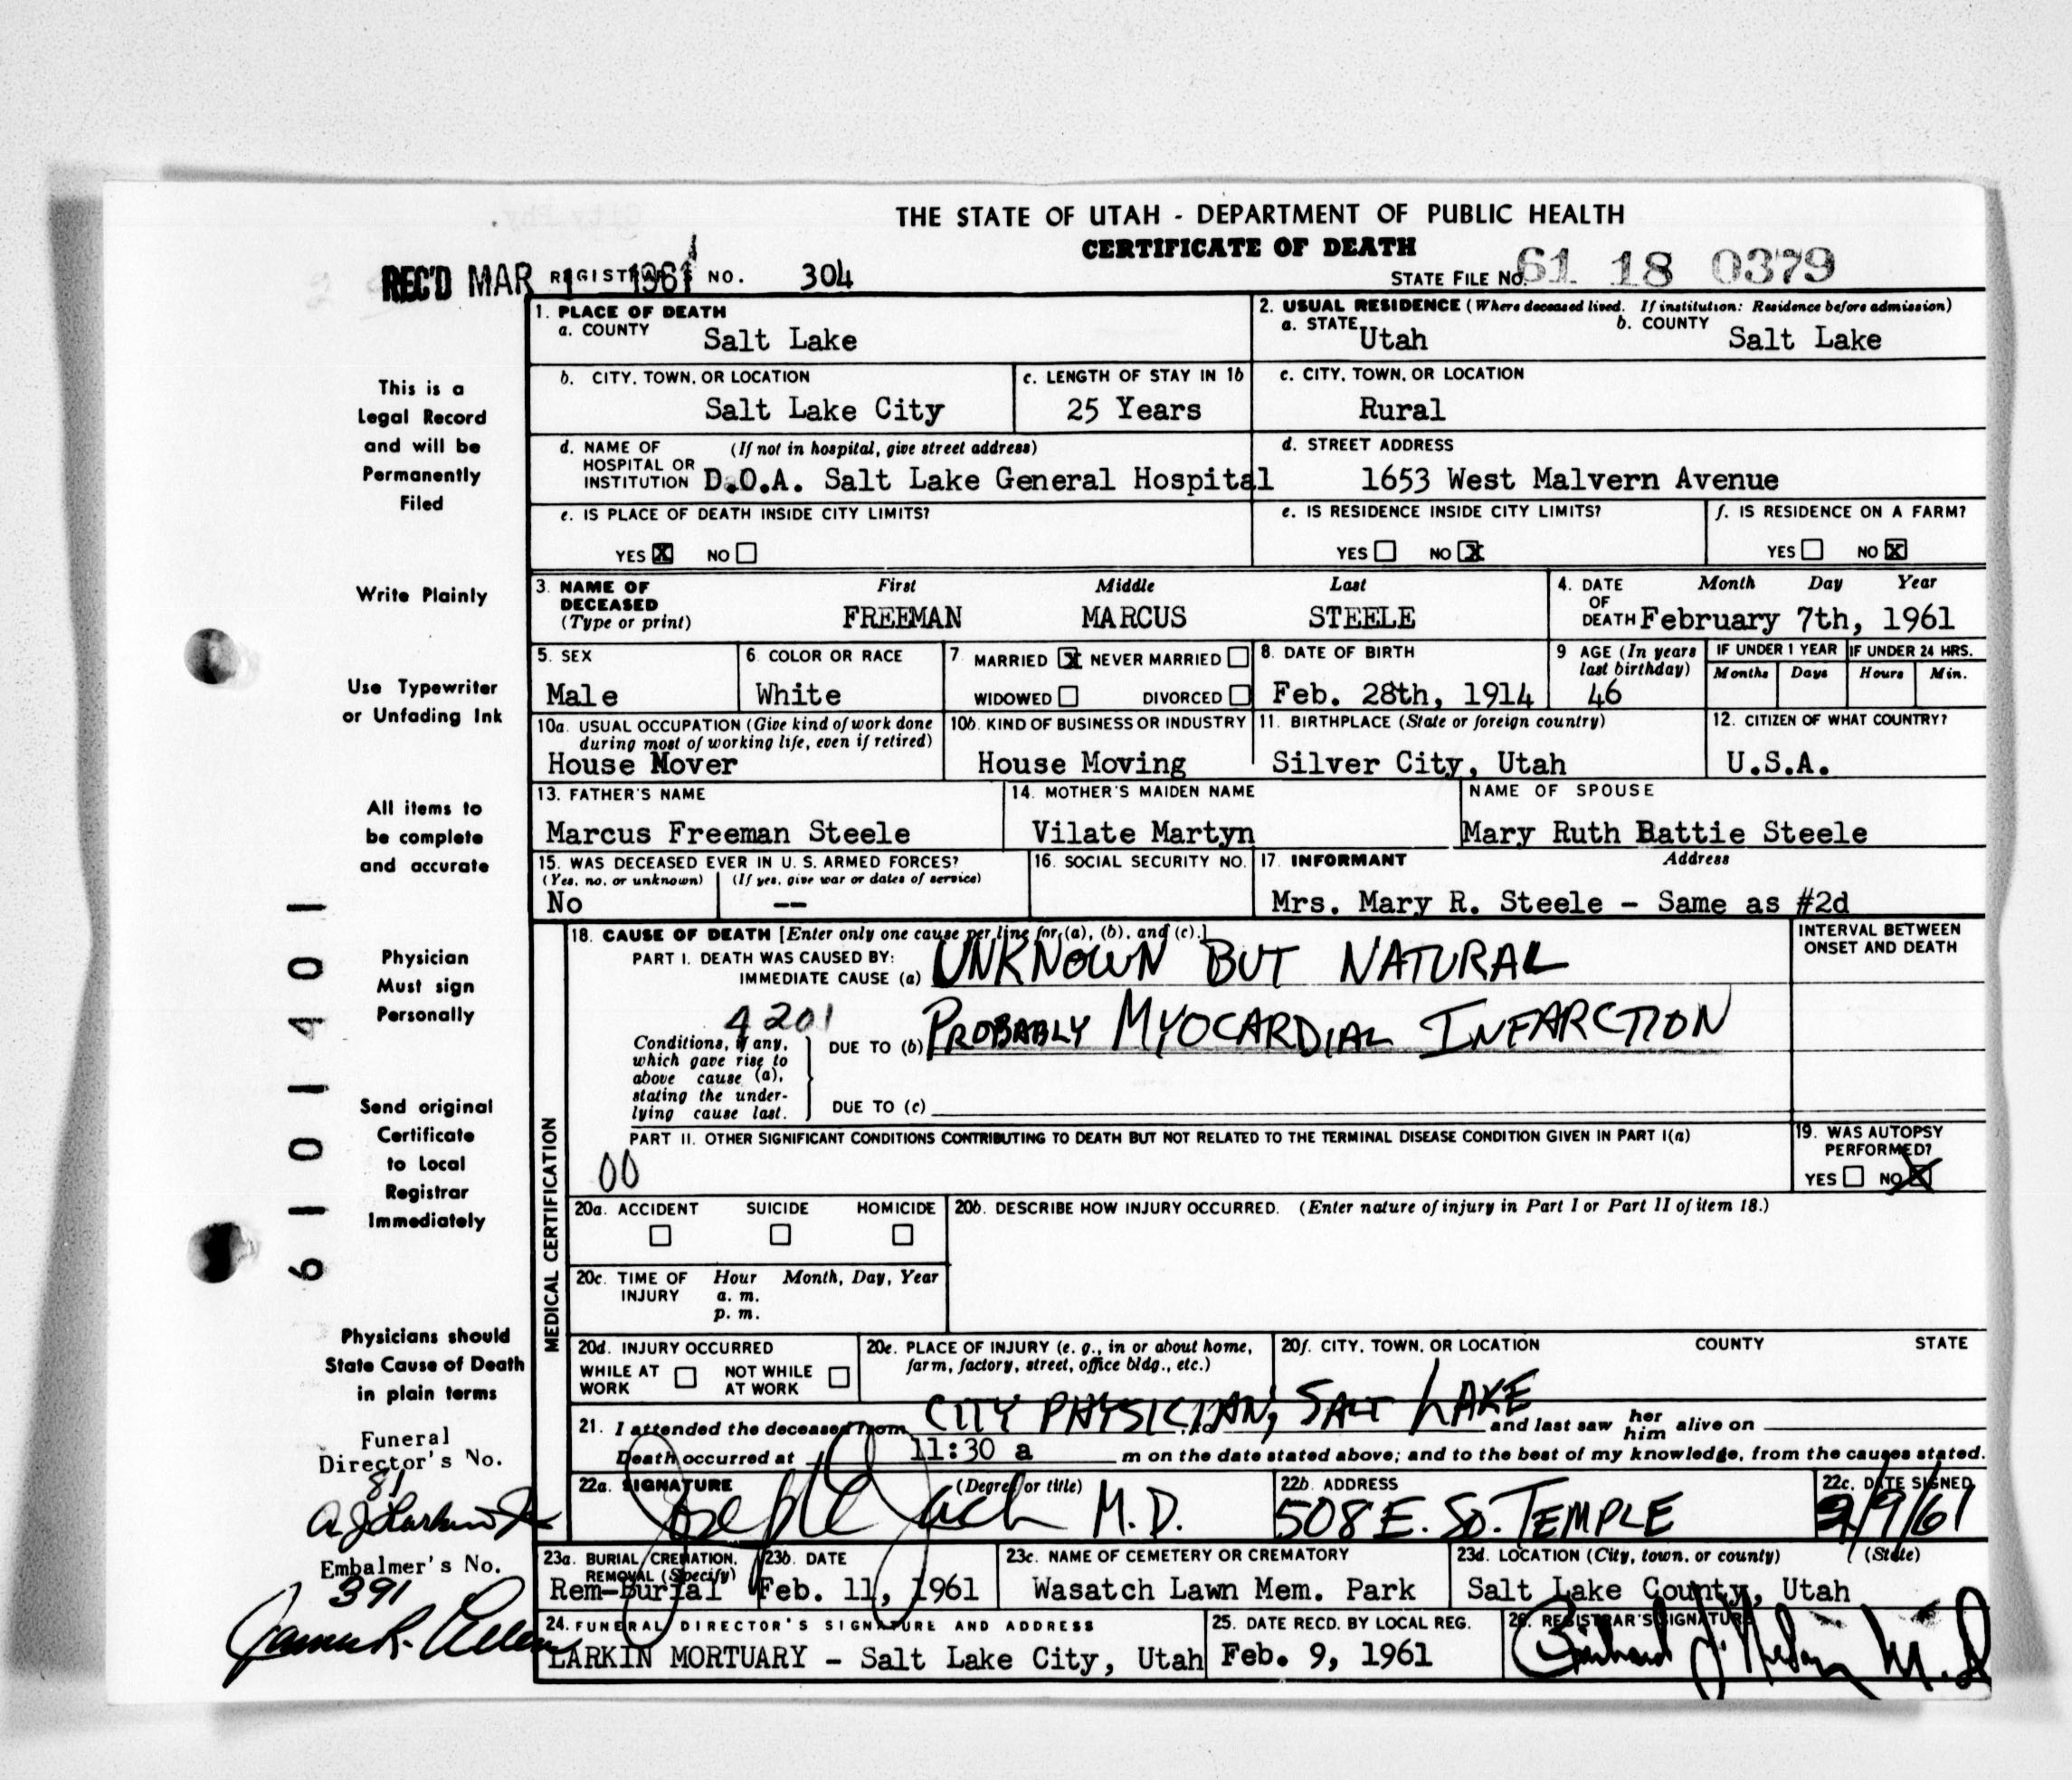 THE STATE OF UTAH - DEPARTMENT OF PUBLIC HEALTH
CERTIFICATE OF DEATH
REC'D MAR 1 1961 REGISTRAR'S NO. 304 STATE FILE NO. 61 18 0379
1. PLACE OF DEATH
a. COUNTY Salt Lake
2. USUAL RESIDENCE (Where deceased lived. If institution: Residence before admission)
a. STATE Utah b. COUNTY Salt Lake
b. CITY, TOWN, OR LOCATION
Salt Lake City
c. LENGTH OF STAY IN 1b
25 Years
c. CITY, TOWN, OR LOCATION
Rural
d. NAME OF (If not in hospital, give street address)
HOSPITAL OR
INSTITUTION D.O.A. Salt Lake General Hospital
d. STREET ADDRESS
1653 West Malvern Avenue
e. IS PLACE OF DEATH INSIDE CITY LIMITS?
YES X NO
e. IS RESIDENCE INSIDE CITY LIMITS?
YES NO X
f. IS RESIDENCE ON A FARM?
YES NO X
3. NAME OF First Middle Last
DECEASED
(Type or print) FREEMAN MARCUS STEELE
4. DATE Month Day Year
OF
DEATH February 7th, 1961
5. SEX
Male
6. COLOR OR RACE
White
7. MARRIED X NEVER MARRIED
WIDOWED DIVORCED
8. DATE OF BIRTH
Feb. 28th, 1914
9 AGE (In years
last birthday)
46
IF UNDER 1 YEAR
Months Days
IF UNDER 24 HRS.
Hours Min.
10a. USUAL OCCUPATION (Give kind of work done
during most of working life, even if retired)
House Mover
10b. KIND OF BUSINESS OR INDUSTRY
House Moving
11. BIRTHPLACE (State or foreign country)
Silver City, Utah
12. CITIZEN OF WHAT COUNTRY?
U.S.A.
13. FATHER'S NAME
Marcus Freeman Steele
14. MOTHER'S MAIDEN NAME
Vilate Martyn
NAME OF SPOUSE
Mary Ruth Battie Steele
15. WAS DECEASED EVER IN U. S. ARMED FORCES?
(Yes, no, or unknown) (If yes, give war or dates of service)
No --
16. SOCIAL SECURITY NO.
17. INFORMANT Address
Mrs. Mary R. Steele - Same as #2d
MEDICAL CERTIFICATION
18. CAUSE OF DEATH [Enter only one cause per line for (a), (b), and (c).]
PART I. DEATH WAS CAUSED BY:
IMMEDIATE CAUSE (a) UNKNOWN BUT NATURAL
INTERVAL BETWEEN
ONSET AND DEATH
4201
Conditions, if any,
which gave rise to
above cause (a),
stating the under-
lying cause last.
DUE TO (b) PROBABLY MYOCARDIAL INFARCTION
DUE TO (c)
PART II. OTHER SIGNIFICANT CONDITIONS CONTRIBUTING TO DEATH BUT NOT RELATED TO THE TERMINAL DISEASE CONDITION GIVEN IN PART I(a)
00
19. WAS AUTOPSY
PERFORMED?
YES NO X
20a. ACCIDENT SUICIDE HOMICIDE
20b. DESCRIBE HOW INJURY OCCURRED. (Enter nature of injury in Part I or Part II of item 18.)
20c. TIME OF Hour Month, Day, Year
INJURY a. m.
p. m.
20d. INJURY OCCURRED
WHILE AT NOT WHILE
WORK AT WORK
20e. PLACE OF INJURY (e. g., in or about home,
farm, factory, street, office bldg., etc.)
20f. CITY, TOWN, OR LOCATION COUNTY STATE
CITY PHYSICIAN, SALT LAKE
21. I attended the deceased from to and last saw her him alive on
Death occurred at 11:30 a m on the date stated above; and to the best of my knowledge, from the causes stated.
22a. SIGNATURE (Degree or title)
M.D.
22b. ADDRESS
508 E. SO. TEMPLE
22c. DATE SIGNED
2/9/61
23a. BURIAL, CREMATION,
REMOVAL (Specify)
Rem-Burial
23b. DATE
Feb. 11, 1961
23c. NAME OF CEMETERY OR CREMATORY
Wasatch Lawn Mem. Park
23d. LOCATION (City, town, or county) (State)
Salt Lake County, Utah
24. FUNERAL DIRECTOR'S SIGNATURE AND ADDRESS
LARKIN MORTUARY - Salt Lake City, Utah
25. DATE RECD. BY LOCAL REG.
Feb. 9, 1961
26. REGISTRAR'S SIGNATURE
M.D.
This is a
Legal Record
and will be
Permanently
Filed
Write Plainly
Use Typewriter
or Unfading Ink
All items to
be complete
and accurate
Physician
Must sign
Personally
Send original
Certificate
to Local
Registrar
Immediately
Physicians should
State Cause of Death
in plain terms
Funeral
Director's No.
81
Embalmer's No.
391
6 1 0 1 4 0 1